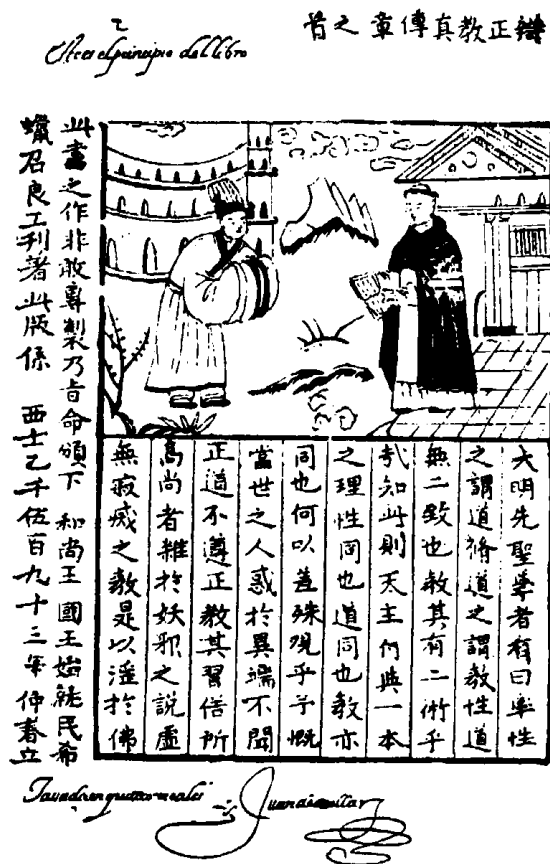 Este es el principio del libro
辯正教真傳章之首
大明先聖學者有曰率性
之謂道脩道之謂教性道
無二致也教其有二術乎
哉知此則天主付與一本
之理性同也道同也教亦
同也何以差殊觀乎予慨
當世之人惑於異端不聞
正道不遵正教其習俗所
爲尚者雜於妖邪之說虛
無寂滅之教是以滛於佛
此書之作非敢專製乃旨命頒下 和尚王 國王始就民希
蠟召良工刊著此版係 西士乙千伍百九十三年仲春立
Tassada en quatro reales
Juan de cuellar